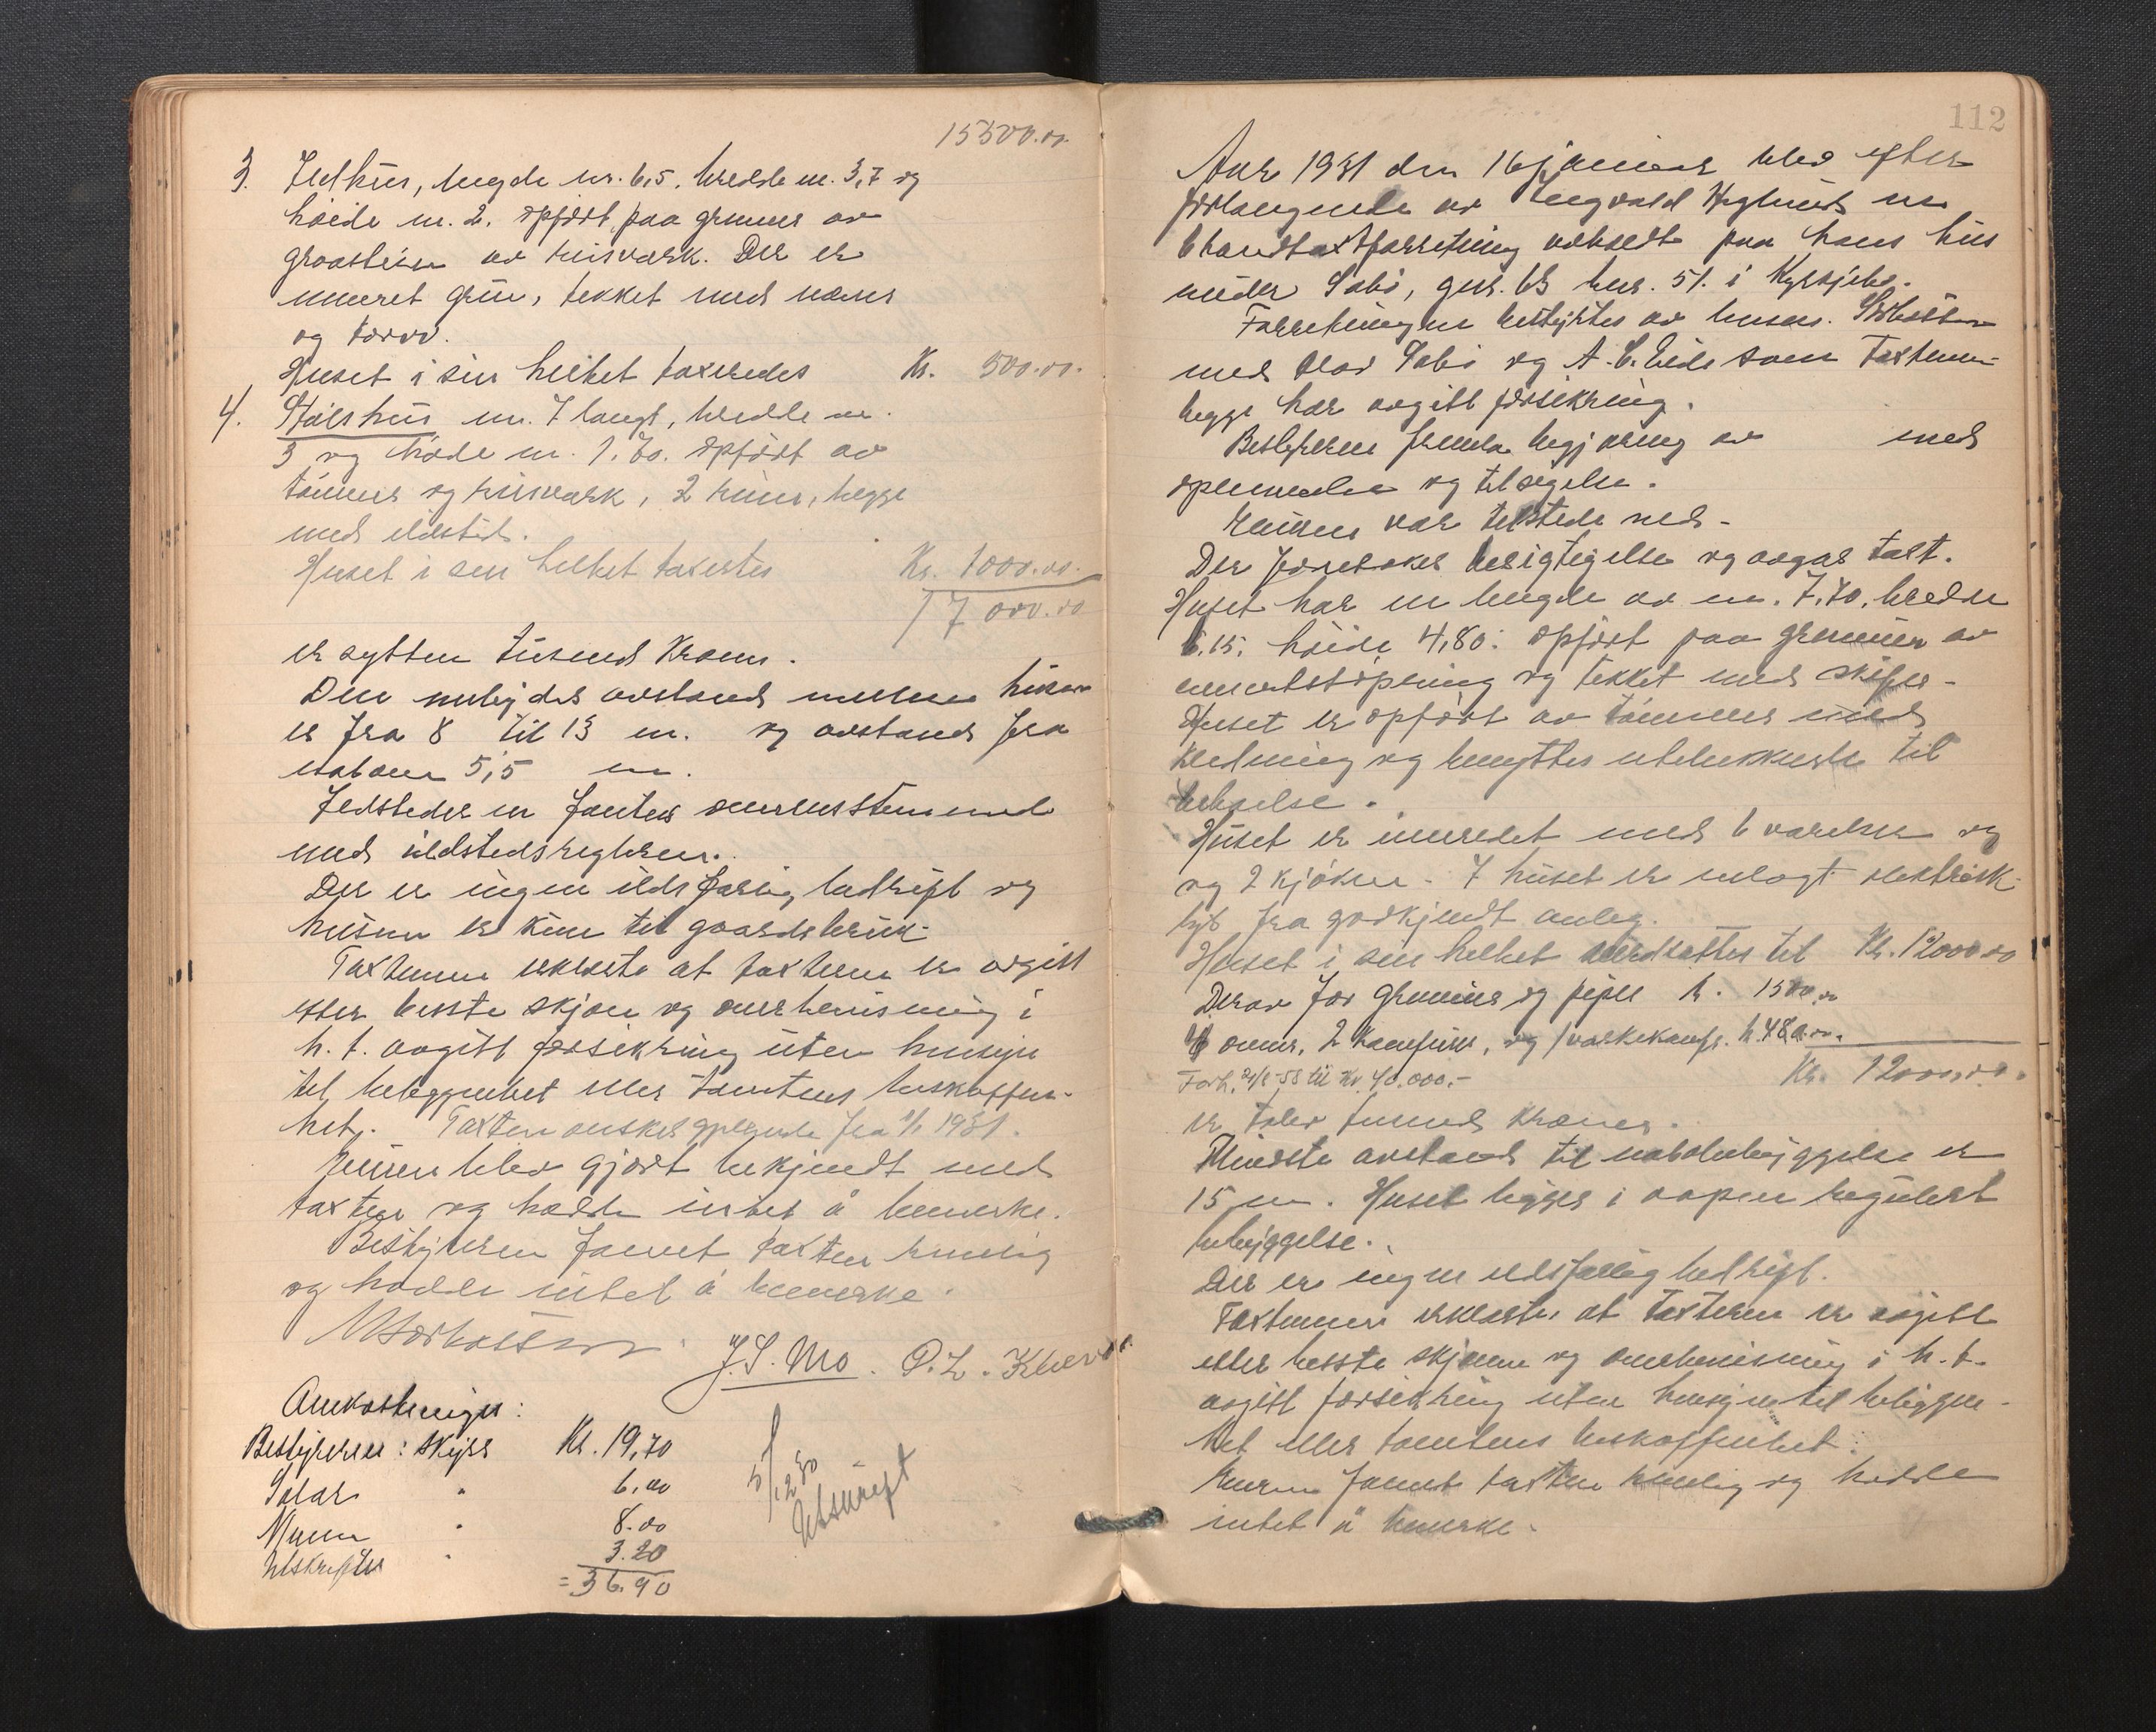 15500.00.
3. Ildhus, lengde m. 6,5, bredde m. 3,7 og
høide m. 2. opført paa grunnur av
graastein av bisverk. Der er
muret gruve, tekket med næver
og torv.
Huset i sin helhet taxeredes Kr. 500.00.
4. Stølshus m. 7 langt, bredde m.
3 og høide m. 1.70. opført av
tømmer og bisverk, 2 rum, begge
med ildsted.
Huset i sin helhet takertes Kr. 1000.00.
17000.00
er sytten tusend Kroner.
Den innbydes avstand mellem husene
er fra 8 til 13 m. og avstand fra
naboen 5,5 m.
Ildsteder er fantes overensstemmende
med ildstedsreglerne.
Der er ingen ildsfarlig bedrift og
husene er kun til gaardsbruk.
Taxtmenn erklærte at taxterne er avgitt
efter beste skjøn og overbevisning i
h. t. avgitt forsikring uten hensyn
til beliggenhet eller tomtens beskaffen-
het. Taxten ønskes gjeldende fra 1/1 1931.
Eieren blev gjort bekjendt med
taxten og hadde intet å bemerke.
Bestyreren fannt taxten rimelig
og hadde intet å bemerke.
J. S. Mo. P. L.
Omkostninger:
Bestyreren: Skyss Kr. 19,70
Salær " 6,00
Menn " 8.00
Utskrifter " 3.20
= 36.90
5/12 30
Utskrift
112
Aar 1931 den 16 januar blev efter
forlangende av Ingvald Høglund en
branntaxtforretning avholdt paa hans hus
under Sæbø, gnr. 63 bnr. 51. i Kyrkjebø.
Forretningen bestyrtes av lensm.
med Olav Sæbø og A. B. Eide som Taxtmenn
begge har avgitt forsikring.
Bestyreren fremla begjæring av med
opnevnelse og tilsigelse.
Eieren var tilstede ved-
Der foretokes besigtigelse og avgav taxt.
Huset har en lengde av m. 7.70, bredde
6.15, høide 4,80. opført paa grunnur av
sementstøpning og tekket med skifer-
Huset er opført av tømmer med
kledning og benyttes utelukkende til
beboelse.
Huset er innredet med 6 værelser og
og 2 kjøkken. I huset er innlagt elektrisk
lys fra godkjendt anleg.
Huset i sin helhet verdsettes til Kr. 12000.00
Derav for grunnur og piper kr. 1500.00
4 ovner, 2 komfurer, og 1 vaskekomf. kr. 480.00.
Forh. 2/8-58 til kr. 40.000.- Kr. 12000,00.
er tolv tusend kroner.
Mindste avstand til nabobebyggelse er
15 m. Huset ligger i aapen regulert
bebyggelse.
Der er ingen ildsfarlig bedrift.
Taxtmenn erklærte at taxterne er avgitt
efter beste skjønn og overbevisning i h. t.
avgitt forsikring uten hensyn til beliggen-
het eller tomtens beskaffenhet.
Eieren fannt taxten rimelig og hadde
intet å bemerke.